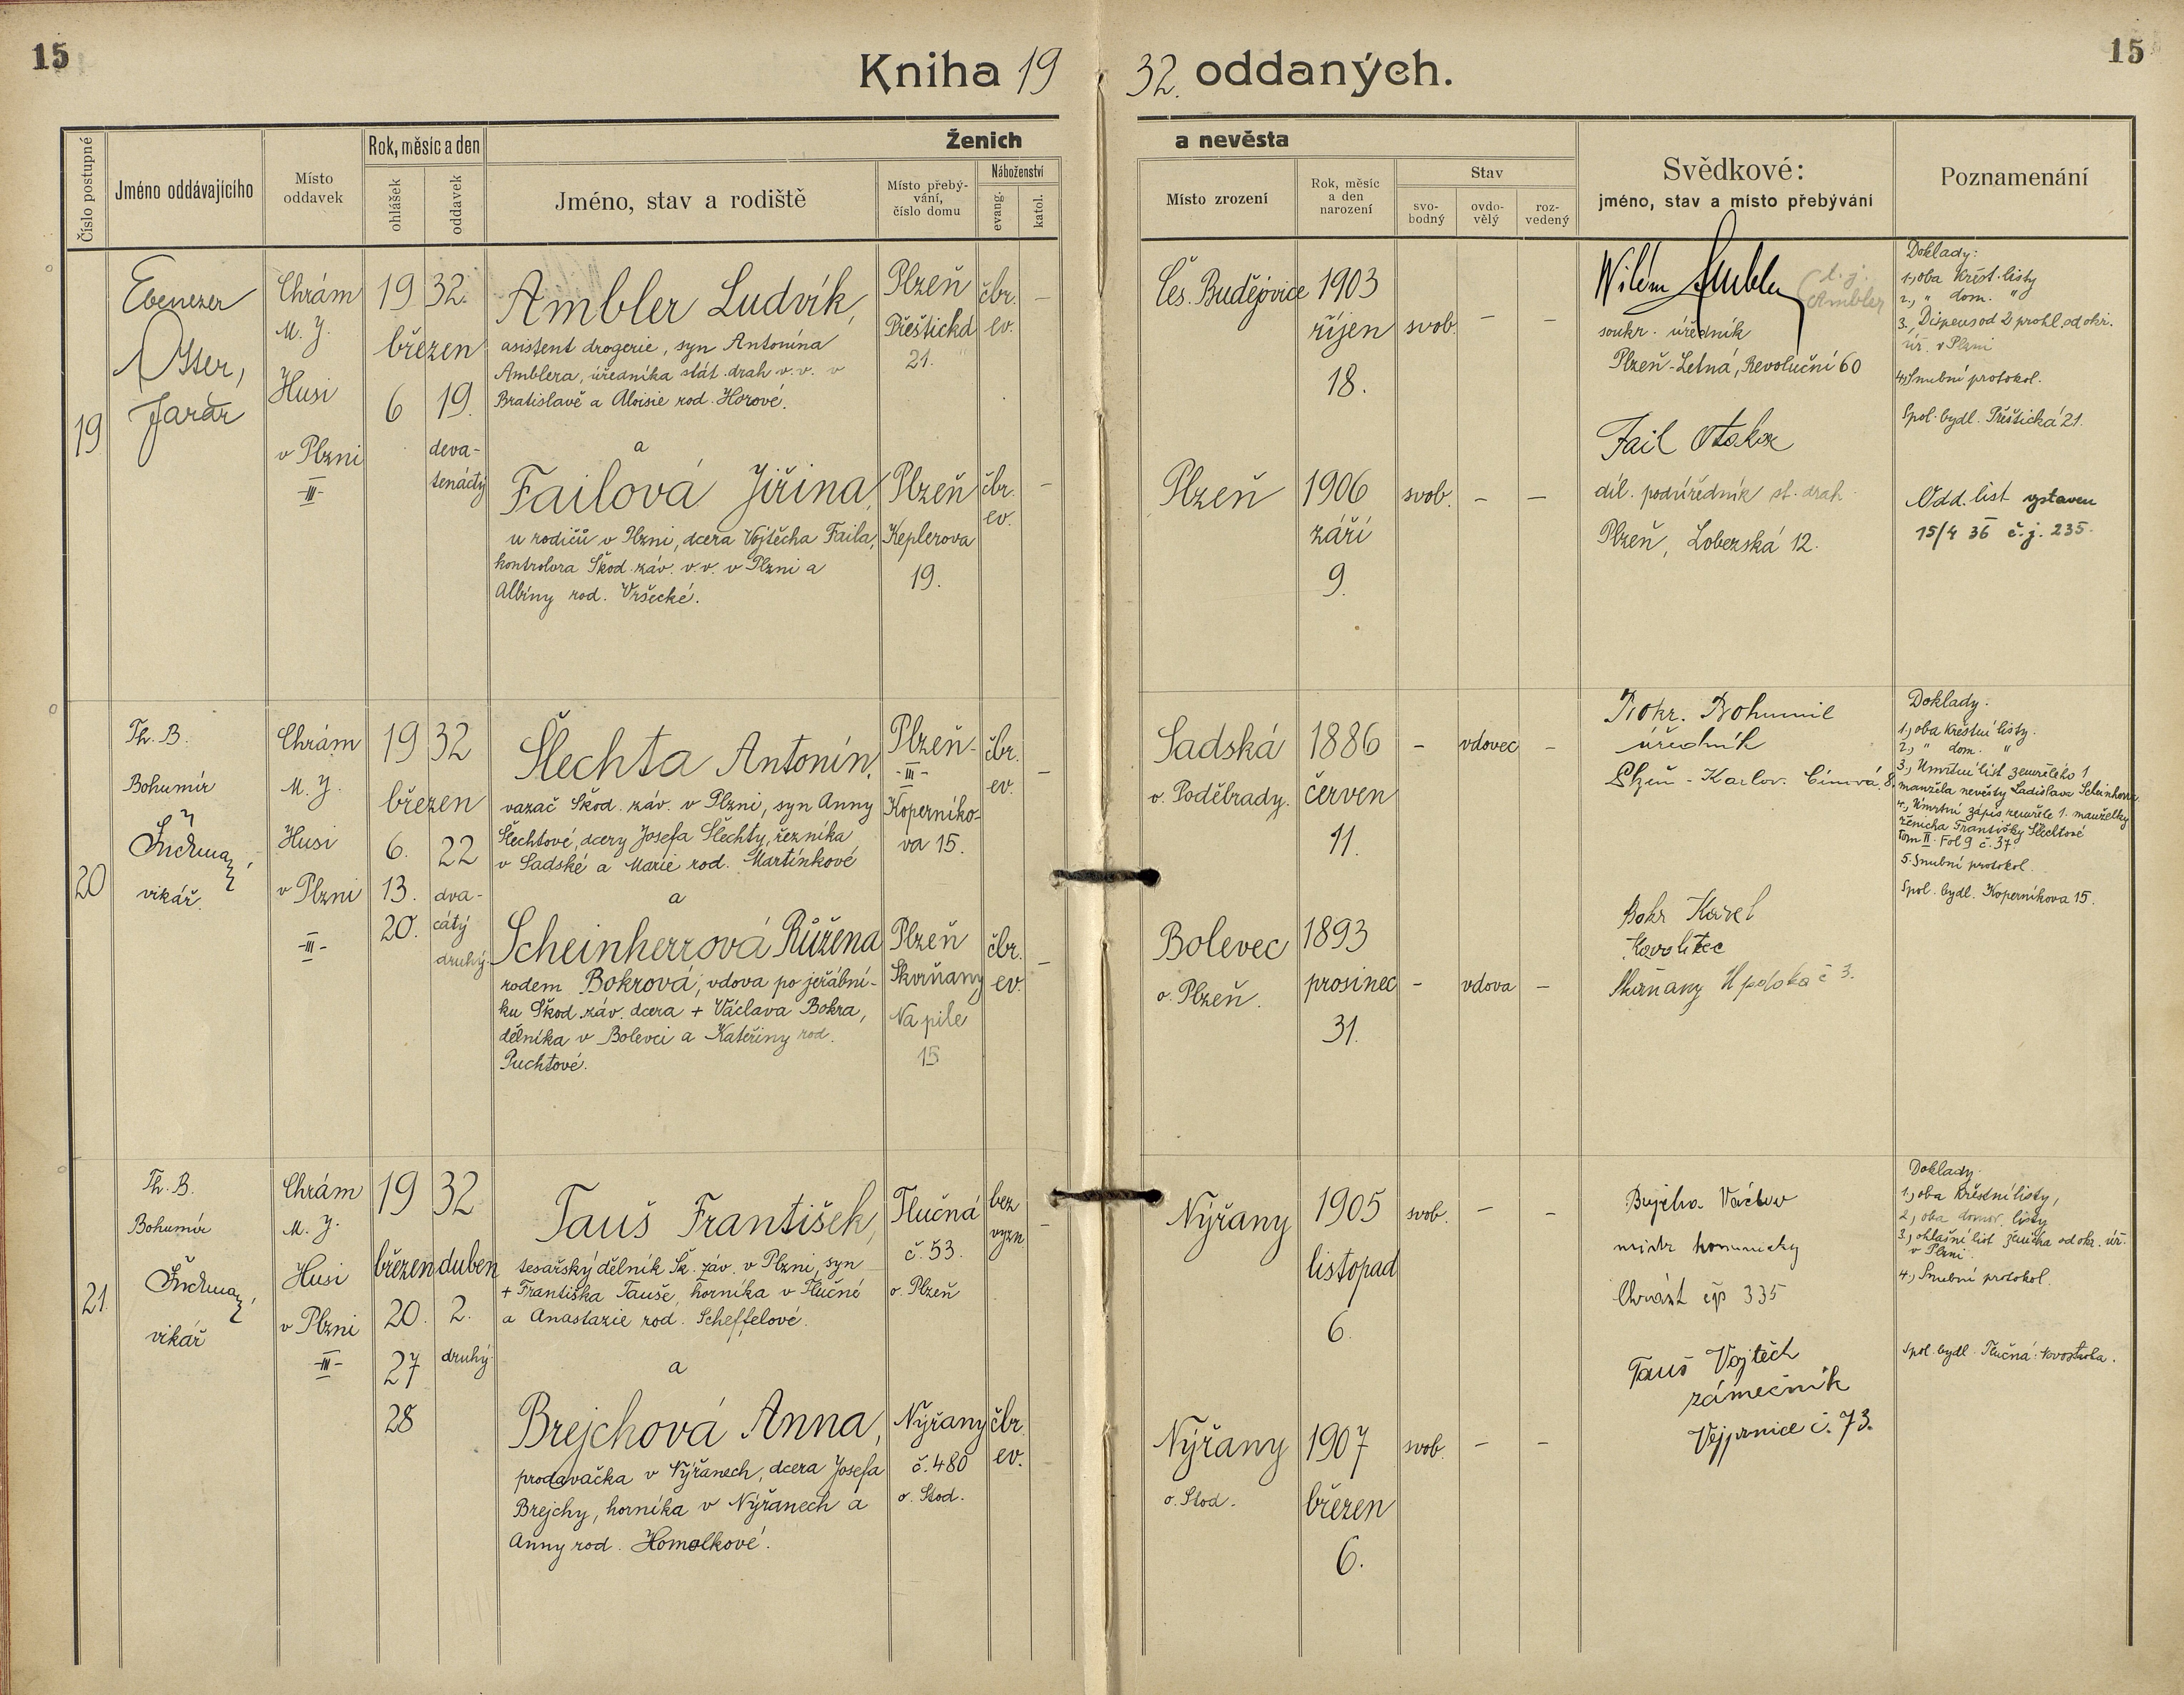 15
Kniha 19 32. oddaných.
15
Číslo postupné
Jméno oddávajícího
Místo oddavek
Rok, měsíc a den
ohlášek
oddavek
Ženich
a nevěsta
Jméno, stav a rodiště
Místo přebý-
vání,
číslo domu
Náboženství
evang.
katol.
Místo zrození
Rok, měsíc
a den
narození
Stav
svo-
bodný
ovdo-
vělý
roz-
vedený
Svědkové:
jméno, stav a místo přebývání
Poznamenání
19
Ebenezer
Otter,
farář
Chrám
M. J.
Husi
v Plzni
-III-
19 32.
březen
6 19.
deva-
tenáctý
Ambler Ludvík,
asistent drogerie, syn Antonína
Amblera, úředníka stát. drah v.v. v
Bratislavě a Aloisie rod. Horové.
a
Failová Jiřina,
u rodičů v Plzni, dcera Vojtěcha Faila,
kontrolora Škod. záv. v.v. v Plzni a
Albíny rod. Vršecké.
Plzeň
Přeštická
21.
Plzeň
Keplerova
19.
čbr.
ev.
–
čbr.
ev.
–
Čes. Budějovice
1903
říjen
18.
svob. – –
Plzeň
1906
září
9.
svob. – –
Vilém Ambler
(t.j.
Ambler
soukr. úředník
Plzeň-Letná, Revoluční 60
Fail Otakar
díl. podúředník st. drah
Plzeň, Lobezská 12.
Doklady:
1., oba křest. listy
2., " dom. "
3., Dispens od 2 prohl. od okr.
úř. v Plzni
4., Snubní protokol.
Spol. bydl. Přeštická 21.
Odd. list vystaven
15/4 36 č.j. 235.
20
Th. B.
Bohumír
vikář.
Chrám
M. J.
Husi
v Plzni
-III-
19 32
březen
6. 22
13. dva-
20. cátý
druhý
Šlechta Antonín,
vazač Škod. záv. v Plzni, syn Anny
Šlechtové, dcery Josefa Šlechty, řezníka
v Sadské a Marie rod. Martínkové
a
Scheinherrová Růžena
rodem Bokrová, vdova po jeřábní-
ku Škod. záv. dcera + Václava Bokra,
dělníka v Bolevci a Kateřiny rod.
Puchtové.
Plzeň-
-III-
Koperníko-
va 15.
Plzeň
Skvrňany
Na pile
15
čbr.
ev.
–
čbr.
ev.
–
Sadská
o. Poděbrady.
1886
červen
11.
– vdovec –
Bolevec
o. Plzeň.
1893
prosinec
31.
– vdova –
Bokr. Bohumil
úředník
Plzeň - Karlov.
Bokr Karel
Skvrňany
Doklady:
1., oba křestní listy.
2., " dom. "
3., Úmrtní list zemřelého 1
manžela nevěsty Ladislava Scheinherra
4., Úmrtní zápis zemřelé 1. manželky
ženicha Františky Šlechtové
tom II. Fol 9 č. 37
5. Snubní protokol.
Spol. bydl. Koperníkova 15.
21.
Th. B.
Bohumír
vikář
Chrám
M. J.
Husi
v Plzni
-III-
19 32
březen duben
20. 2.
27 druhý
28
Tauš František,
tesařský dělník Šk. záv. v Plzni, syn
+ Františka Tauše, horníka v Tlučné
a Anastazie rod. Scheffelové.
a
Brejchová Anna,
prodavačka v Nýřanech, dcera Josefa
Brejchy, horníka v Nýřanech a
Anny rod. Homolkové.
Tlučná
č. 53.
o. Plzeň
Nýřany
č. 480
o. Stod.
bez
vyzn.
–
čbr.
ev.
Nýřany
1905
listopad
6.
svob. – –
Nýřany
o. Stod.
1907
březen
6.
svob. – –
Václav
mistr kominický
Chrást čp 335
Tauš Vojtěch
zámečník
Vejprnice č. 73.
Doklady:
1., oba křestní listy,
2., oba domov. listy
3., ohlašní list ženicha od okr. úř.
v Plzni.
4., Snubní protokol.
Spol. bydl. Tlučná: